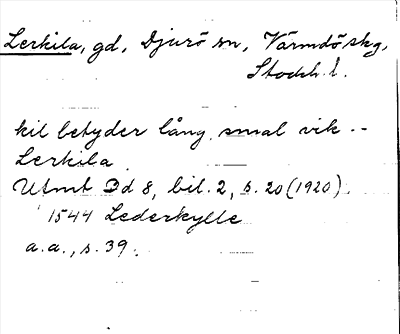 Lerkila, gd, Djurö sn, Värmdö skg,
Stockh. l.
kil betyder lång, smal vik. -
Lerkila
Utmt Dd 8, bil. 2, s. 20 (1920).
1544 Lederkylle
a.a., s. 39.